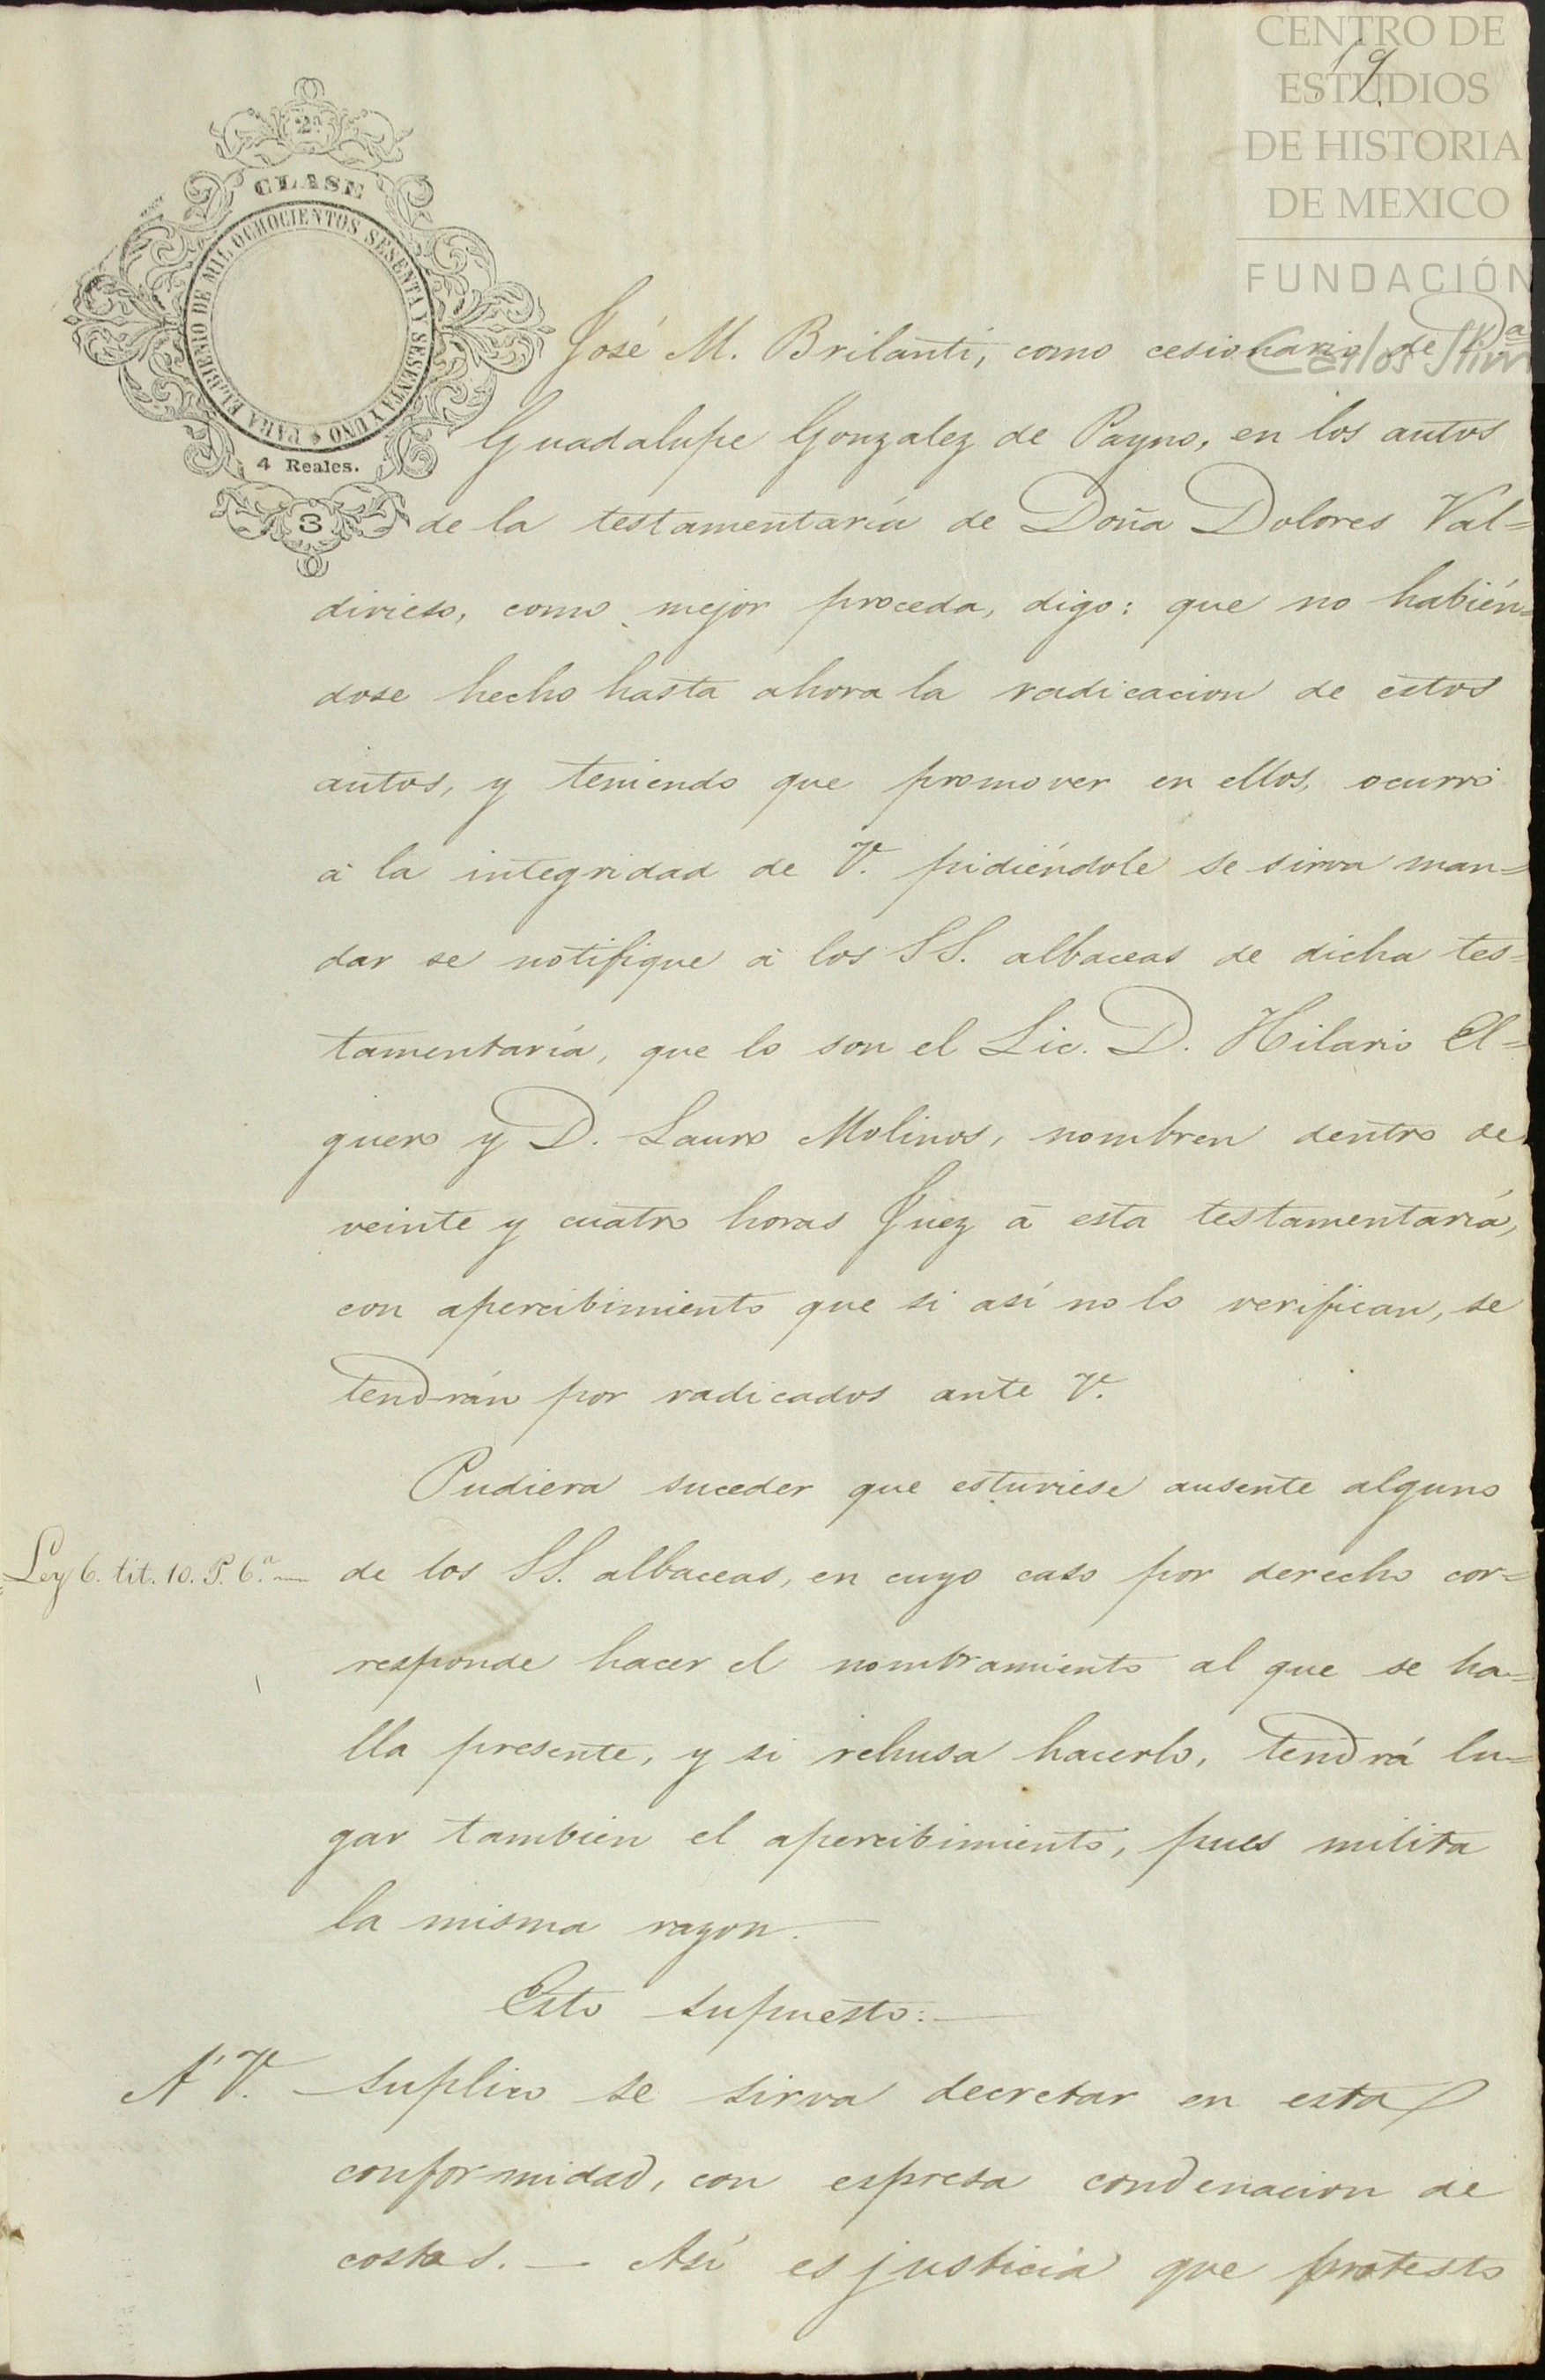 CENTRO DE
ESTUDIOS
DE HISTORIA
DE MEXICO
FUNDACIÓN
Carlos Slim
19.
2ª
CLASE
PARA EL BIENIO DE MIL OCHOCIENTOS SESENTA Y SESENTA Y UNO
4 Reales.
3
José M. Brilanti, como cesionario de Dª
Guadalupe Gonzalez de Payno, en los autos
de la testamentaría de Doña Dolores Val=
divieso, como mejor proceda, digo: que no habién=
dose hecho hasta ahora la radicacion de estos
autos, y teniendo que promover en ellos, ocurro
á la integridad de V. pidiéndole se sirva man=
dar se notifique á los SS. albaceas de dicha tes=
tamentaría, que lo son el Lic. D. Hilario El=
guero y D. Lauro Molinos, nombren dentro de
veinte y cuatro horas Juez á esta testamentaría,
con apercibimiento que si así no lo verifican, se
tendrán por radicados ante V.
Pudiera suceder que estuviese ausente alguno
Ley 6. tit. 10. P. 6ª — de los SS. albaceas, en cuyo caso por derecho cor=
responde hacer el nombramiento al que se ha=
lla presente, y si rehusa hacerlo, tendrá lu=
gar tambien el apercibimiento, pues milita
la misma razon. —
Esto supuesto: —
A V. suplico se sirva decretar en esta
conformidad, con espresa condenacion de
costas. — Así es justicia que protesto